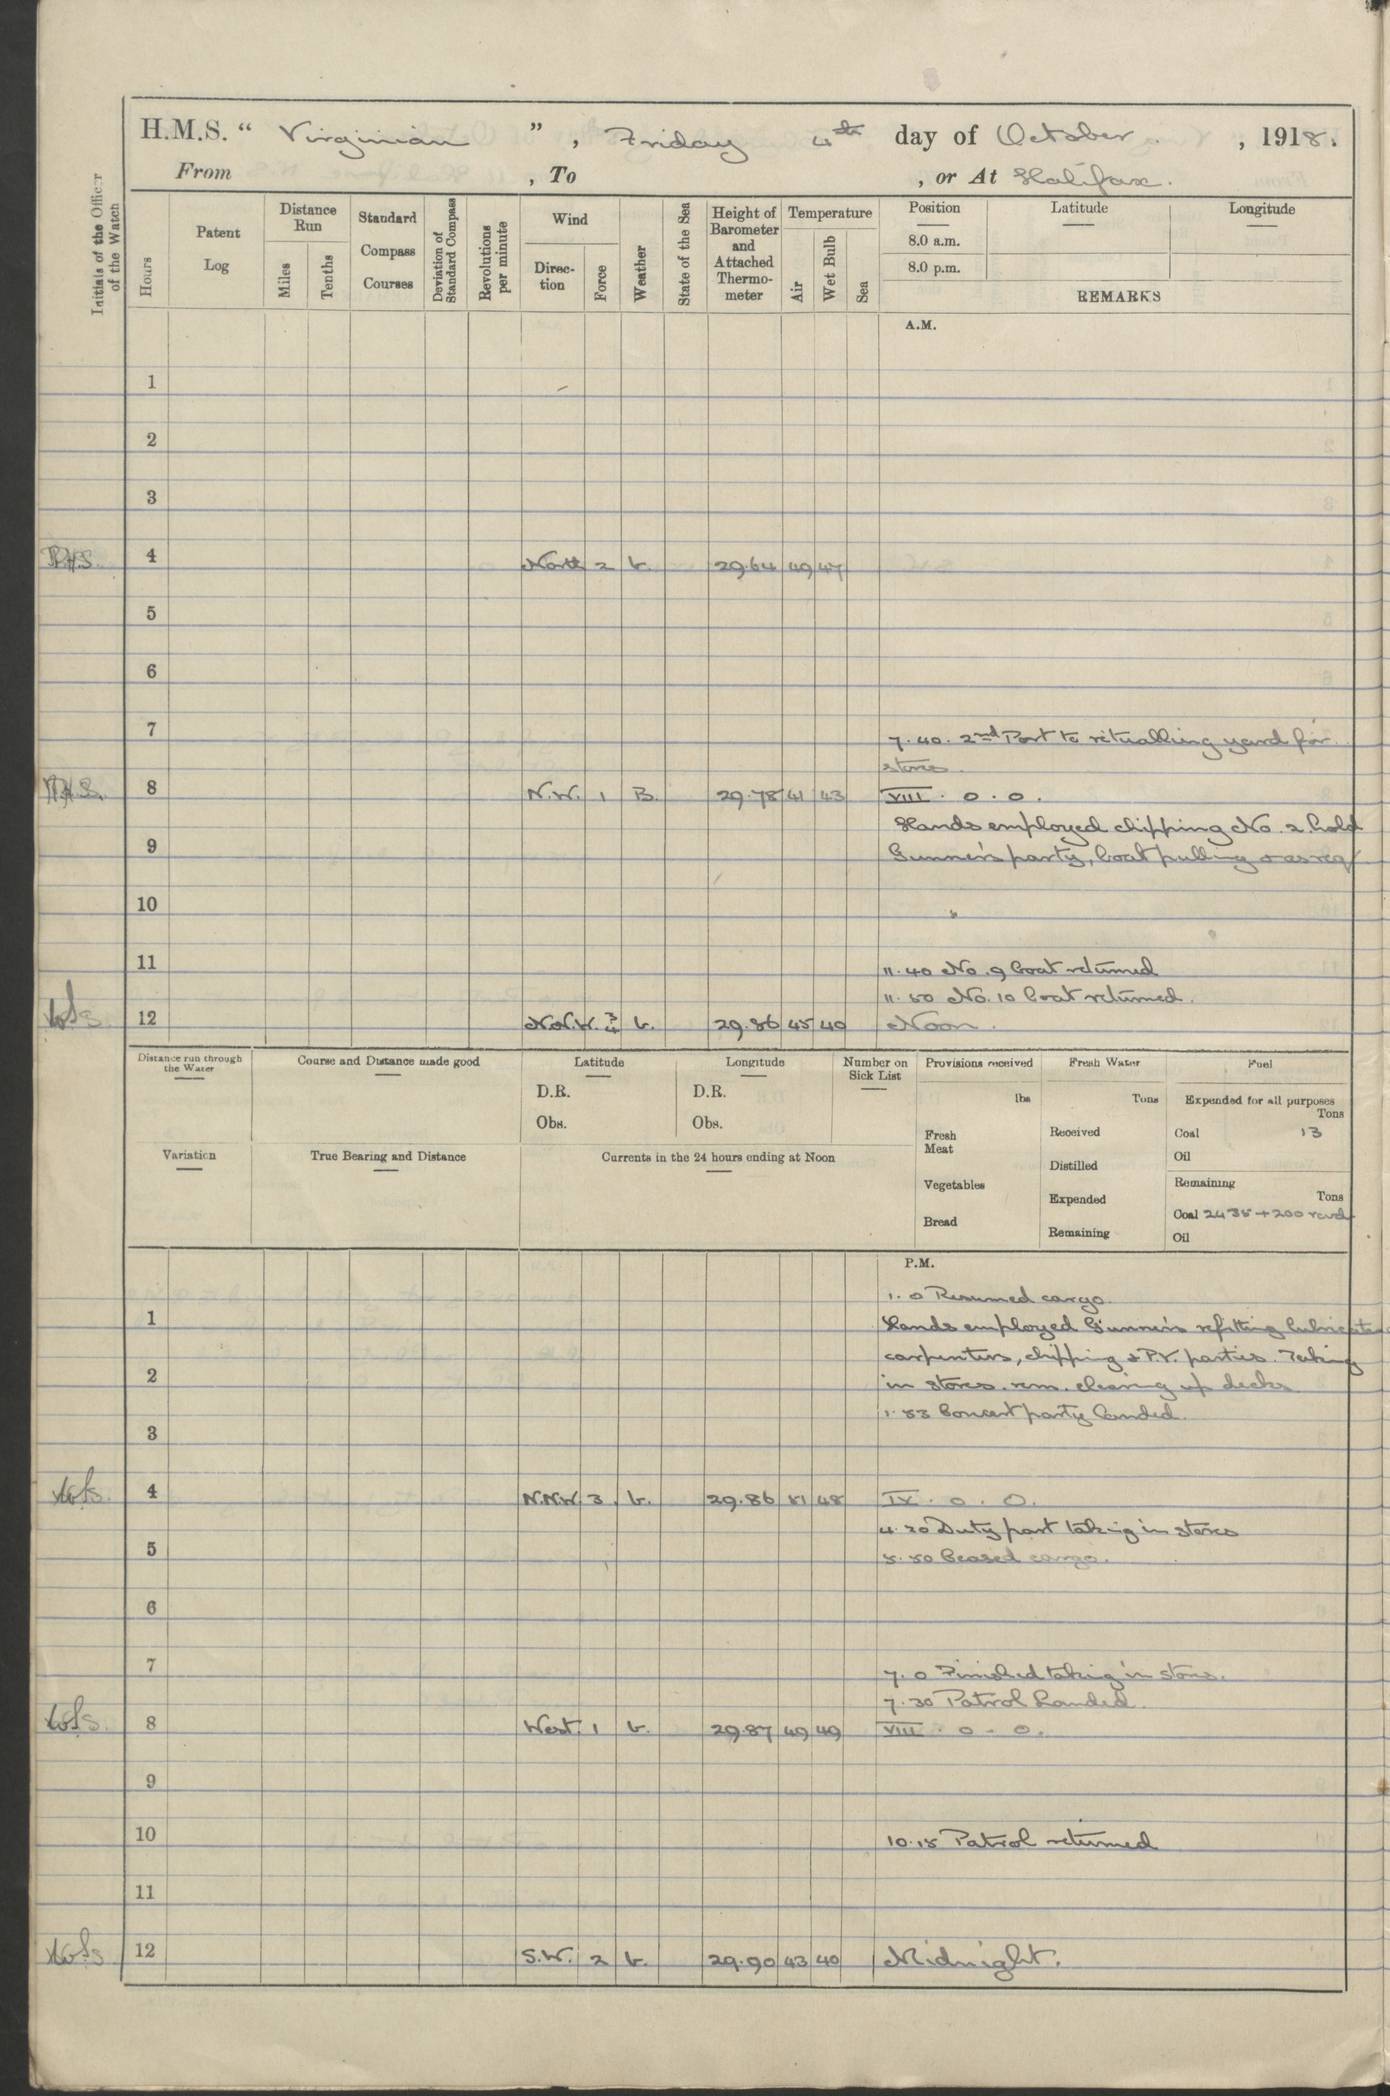 H.M.S. “ Virginian ” , Friday 4th day of October , 1918.
From , To , or At Halifax.
Initials of the Officer of the Watch
Hours
Patent Log
Distance Run
Miles
Tenths
Standard Compass Courses
Deviation of Standard Compass
Revolutions per minute
Wind
Direc-tion
Force
Weather
State of the Sea
Height of Barometer and Attached Thermo-meter
Temperature
Air
Wet Bulb
Sea
Position
Latitude
Longitude
8.0 a.m.
8.0 p.m.
REMARKS
A.M.
1
2
3
4 North 2 b. 29.64 49 47
5
6
7
7.40. 2nd Part to victualling yard for
stores
8 N.W. 1 B. 29.78 41 43 VIII . 0 . 0 .
Hands employed chipping No. 2 hold
9
Gunner's party, boat pulling & as req
10
11
11.40 No. 9 boat returned
11.50 No. 10 boat returned.
12 N.N.W. 3/4 b. 29.86 45 40 Noon.
Distance run through the Water
Course and Distance made good
Latitude
D.R.
Obs.
Longitude
D.R.
Obs.
Number on Sick List
Provisions received
lbs
Fresh Meat
Vegetables
Bread
Fresh Water
Tons
Received
Distilled
Expended
Remaining
Fuel
Expended for all purposes
Tons
Coal 13
Oil
Remaining
Tons
Coal 2435 + 200 recvd
Oil
Variation
True Bearing and Distance
Currents in the 24 hours ending at Noon
P.M.
1.0 Resumed cargo.
1
Hands employed Gunner's refitting
carpenters, chipping & P.V. parties. Taking
2
in stores. rem. clearing up decks
1.53 Concert party landed.
3
4 N.N.W. 3 b. 29.86 51 48 IV . 0 . 0.
4.20 Duty part taking in stores
5
5.50 Ceased cargo.
6
7
7.0 Finished taking in stores.
7.30 Patrol Landed
8 West. 1 b. 29.87 49 49 VIII . 0 . 0.
9
10 10.15 Patrol returned
11
12 S.W. 2 b. 29.90 43 40 Midnight.